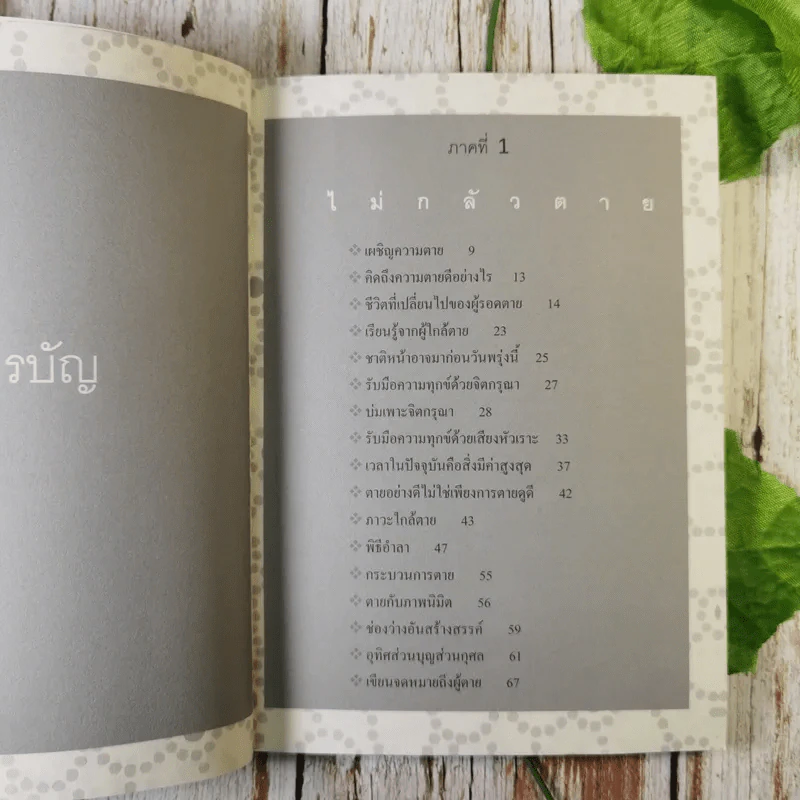 รบัญ
ภาคที่ 1
ไม่กลัวตาย
❖ เผชิญความตาย 9
❖ คิดถึงความตายดีอย่างไร 13
❖ ชีวิตที่เปลี่ยนไปของผู้รอดตาย 14
❖ เรียนรู้จากผู้ใกล้ตาย 23
❖ ชาติหน้าอาจมาก่อนวันพรุ่งนี้ 25
❖ รับมือความทุกข์ด้วยจิตกรุณา 27
❖ บ่มเพาะจิตกรุณา 28
❖ รับมือความทุกข์ด้วยเสียงหัวเราะ 33
❖ เวลาในปัจจุบันคือสิ่งมีค่าสูงสุด 37
❖ ตายอย่างดีไม่ใช่เพียงการตายดูดี 42
❖ ภาวะใกล้ตาย 43
❖ พิธีอำลา 47
❖ กระบวนการตาย 55
❖ ตายกับภาพนิมิต 56
❖ ช่องว่างอันสร้างสรรค์ 59
❖ อุทิศส่วนบุญส่วนกุศล 61
❖ เขียนจดหมายถึงผู้ตาย 67